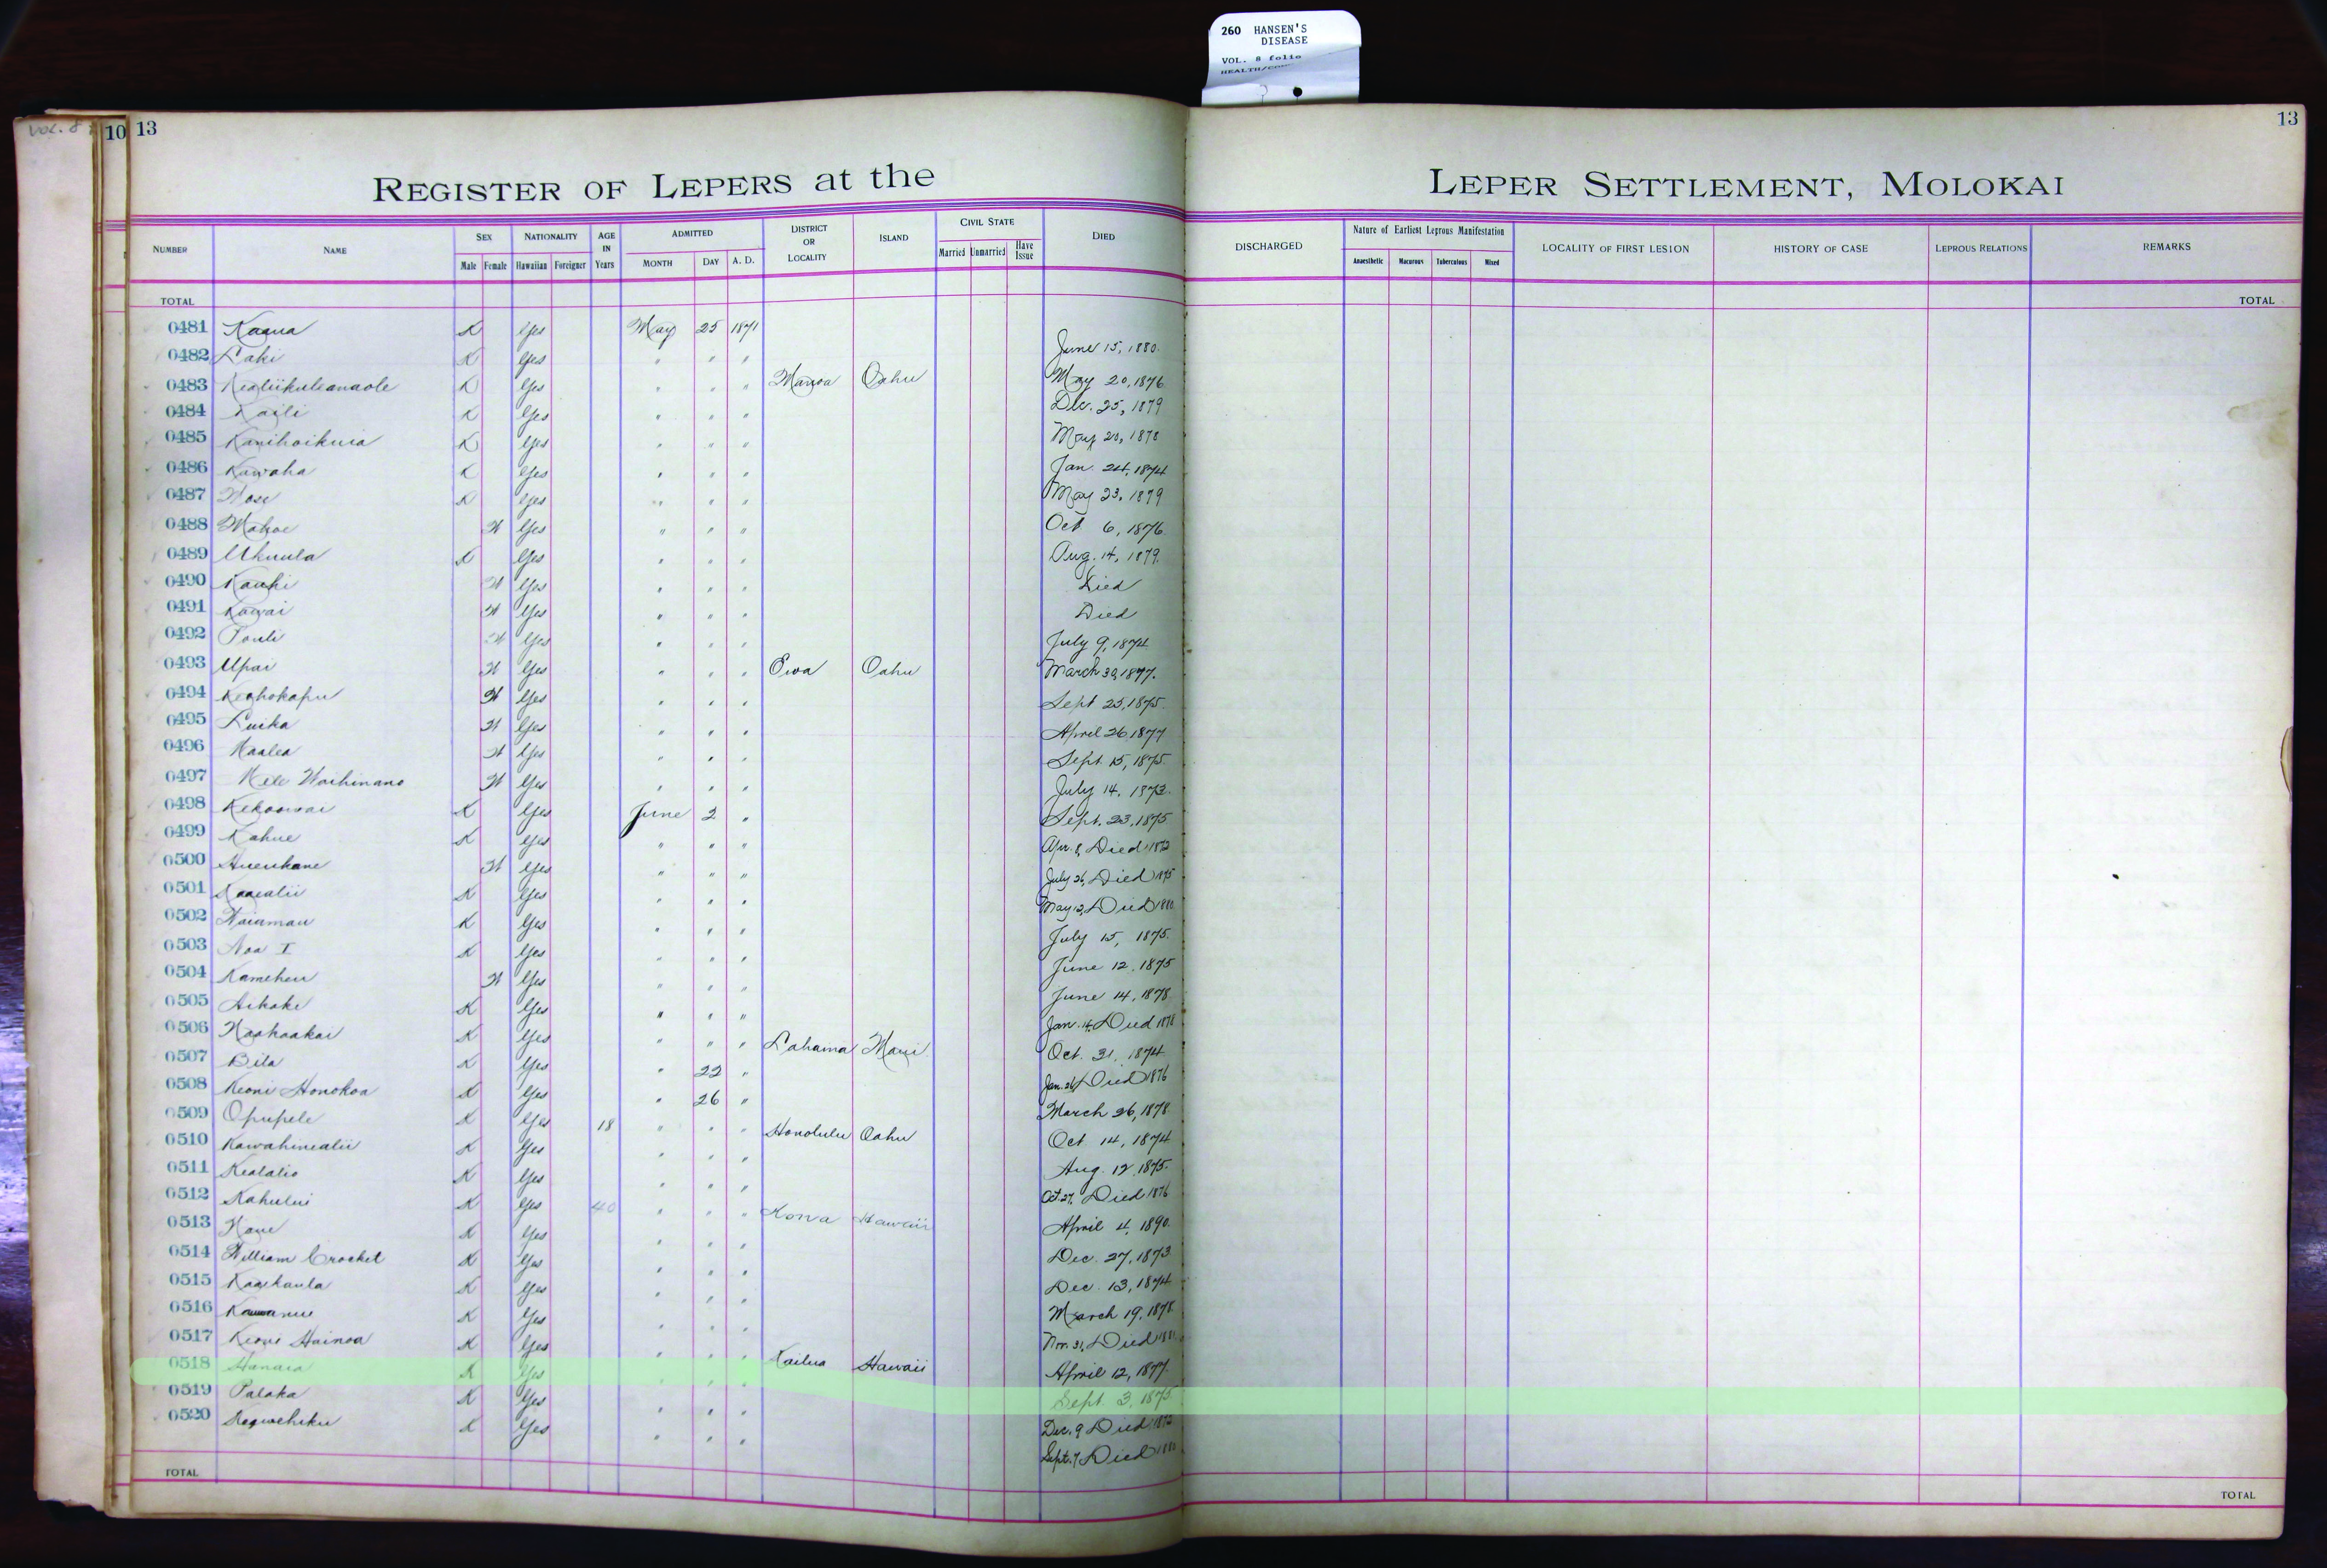 260 HANSEN'S
DISEASE
VOL. 8 folio
VOL. 8
10
13
13
REGISTER OF LEPERS at the
LEPER SETTLEMENT, MOLOKAI
NUMBER NAME SEX Male Female NATIONALITY Hawaiian Foreigner AGE IN Years ADMITTED MONTH DAY A. D. DISTRICT OR LOCALITY ISLAND CIVIL STATE Married Unmarried Have Issue DIED DISCHARGED Nature of Earliest Leprous Manifestation Anaesthetic Macurous Tuberculous Mixed LOCALITY OF FIRST LESION HISTORY OF CASE LEPROUS RELATIONS REMARKS
TOTAL TOTAL
0481 Kaaua K Yes May 25 1871
0482 Laki K Yes " " " June 15, 1880.
0483 Kealiikuleanaole K Yes " " " Manoa Oahu May 20, 1876
0484 Kaili K Yes " " " Dec. 25, 1879
0485 Kanihoikuia K Yes " " " May 20, 1878
0486 Kawaha K Yes " " " Jan. 24, 1874
0487 K Yes " " " May 23, 1879
0488 Mahoe W Yes " " " Oct 6, 1876.
0489 Ukuula K Yes " " " Aug. 14, 1879.
0490 Kauhi W Yes " " " Died
0491 Kawai W Yes " " " Died
0492 Pouli W Yes " " " July 9, 1874
0493 Upai W Yes " " " Ewa Oahu March 30, 1877.
0494 Keohokapu W Yes " " " Sept 25, 1875.
0495 Luika W Yes " " " April 26 1877
0496 Kaalea W Yes " " " Sept. 15, 1875.
0497 Mele Waihinano W Yes " " " July 14, 1873.
0498 Kekoowai K Yes June 2 " Sept. 23, 1875
0499 Kahue K Yes " " " Apr. 8, Died 1872
0500 Hueukane W Yes " " " July 26, Died 1875
0501 Kaaealii K Yes " " " May 12, Died 1880
0502 Waiamau K Yes " " " July 15, 1875.
0503 Noa I K Yes " " " June 12, 1875
0504 Kameheu W Yes " " " June 14, 1878
0505 Aikake K Yes " " " Jan. 14, Died 1878
0506 Naahaakai K Yes " " " Lahaina Maui Oct. 31, 1874
0507 Bila K Yes " 22 " Jan. 26, Died 1876
0508 Keoni Honokoa K Yes " 26 " March 26, 1878.
0509 Opupele K Yes 18 " " " Honolulu Oahu Oct 14, 1874
0510 Kawahinealii K Yes " " " Aug. 12, 1875.
0511 Kealalio K Yes " " " Oct. 27, Died 1876
0512 Kahului K Yes 40 " " " Kona Hawaii April 4, 1890.
0513 Kane K Yes " " " Dec. 27, 1873.
0514 William Crocket K Yes " " " Dec. 13, 1874
0515 Kaaikaula K Yes " " " March 19, 1878
0516 K Yes " " " Nov. 31, Died 1881
0517 Keoni Hainoa K Yes " " " Kailua Hawaii April 12, 1877.
0518 Hanaia K Yes " " " Sept. 3, 1875.
0519 Palaka K Yes " " " Dec. 9 Died 1872
0520 Keawehiku K Yes " " " Sept. 7, Died 1880
TOTAL TOTAL